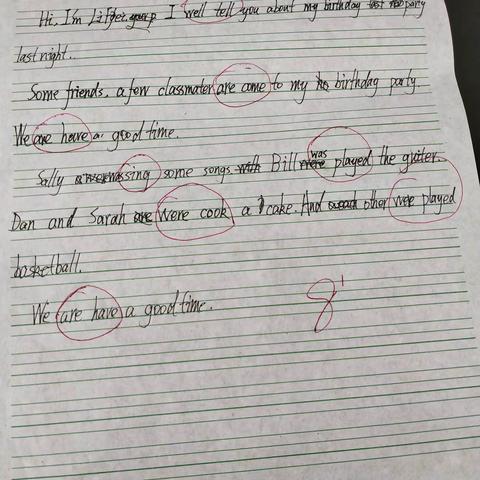 Hi, I'm I well tell you about my birthday party
last night.
Some friends, a few classmater are came to my birthday party.
We are have a good time.
Sally sing some songs Bill was played the guiter.
Dan and Sarah were cook a cake. And other were played
basketball.
We are have a good time.
8'